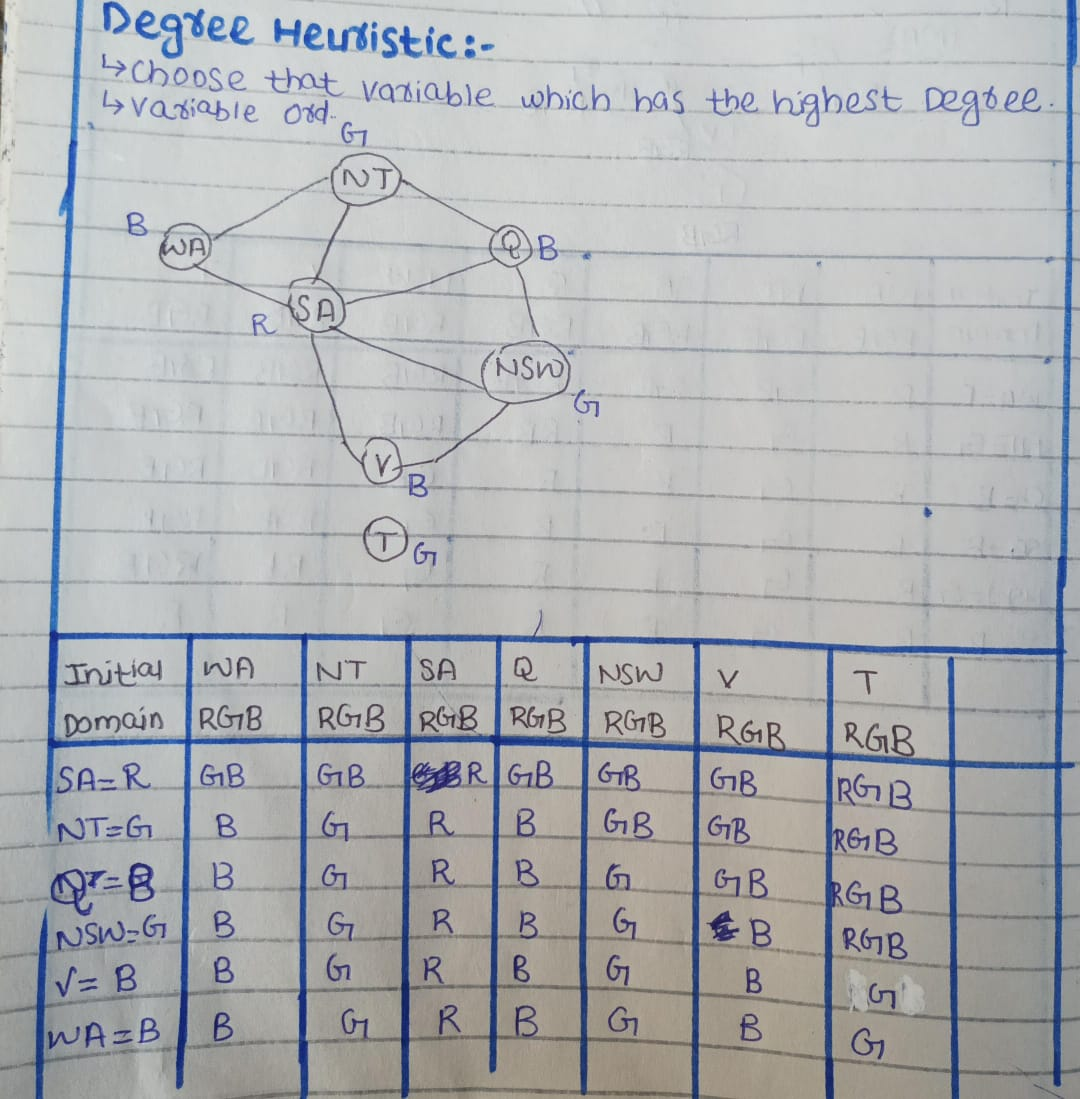 Degree Heuristic:-
↳ choose that variable which has the highest Degree.
↳ variable ord.
G
NT
B
WA
Q B
SA
R
NSW
G
V
B
T G
Initial WA NT SA Q NSW V T
Domain RGB RGB RGB RGB RGB RGB RGB
SA=R GB GB R GB GB GB RGB
NT=G B G R B GB GB RGB
Q=B B G R B G GB RGB
NSW=G B G R B G B RGB
V=B B G R B G B G
WA=B B G R B G B G